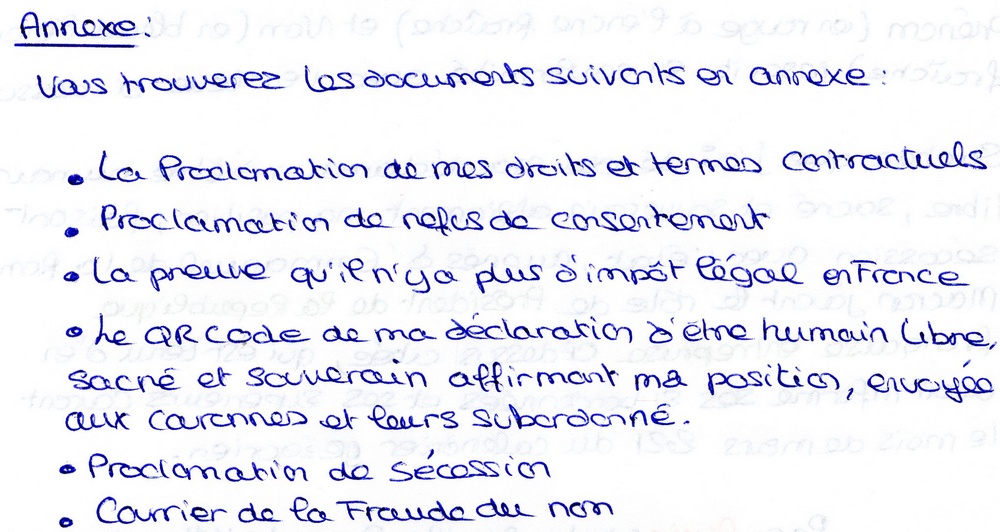 Annexe :
Vous trouverez les documents suivants en annexe :
• La Proclamation de mes droits et termes contractuels
• Proclamation de refus de consentement
• La preuve qu'il n'y a plus d'impôt légal en France
• Le QR code de ma déclaration d'être humain libre,
sacré et souverain affirmant ma position, envoyée
aux couronnes et leurs subordonné.
• Proclamation de Sécession
• Courrier de la Fraude du nom